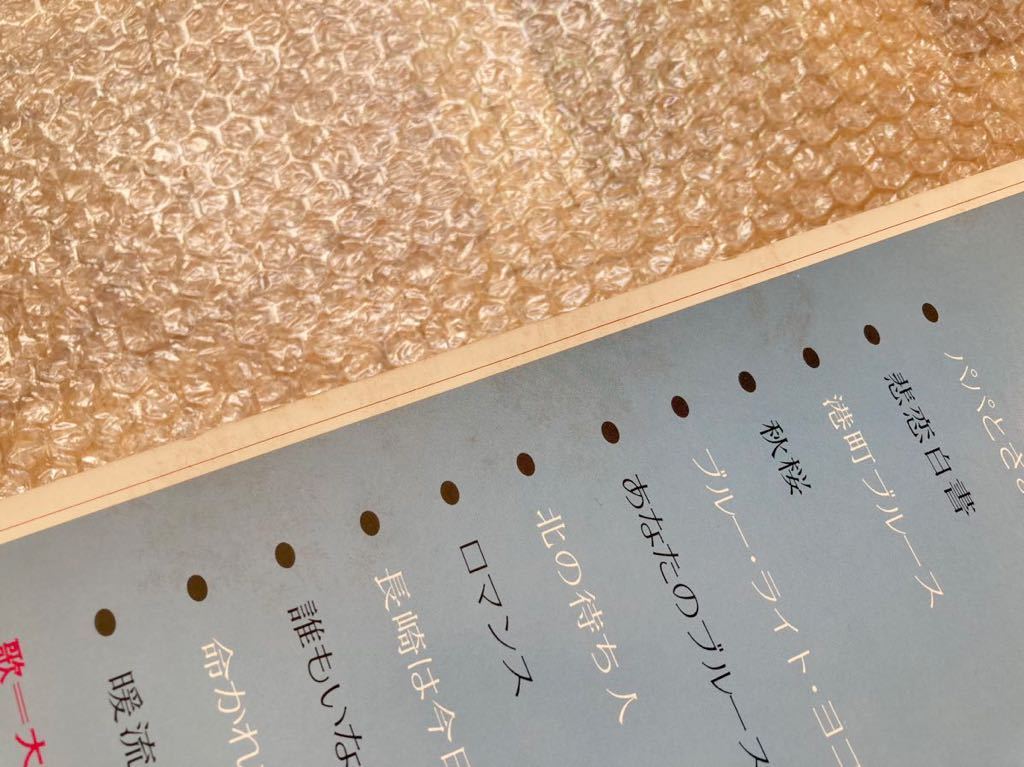 パパとさ
悲恋白書
港町ブルース
秋桜
ブルー・ライト・ヨコ
あなたのブルース
北の待ち人
ロマンス
長崎は今日
誰もいな
命かれ
暖流
歌=大